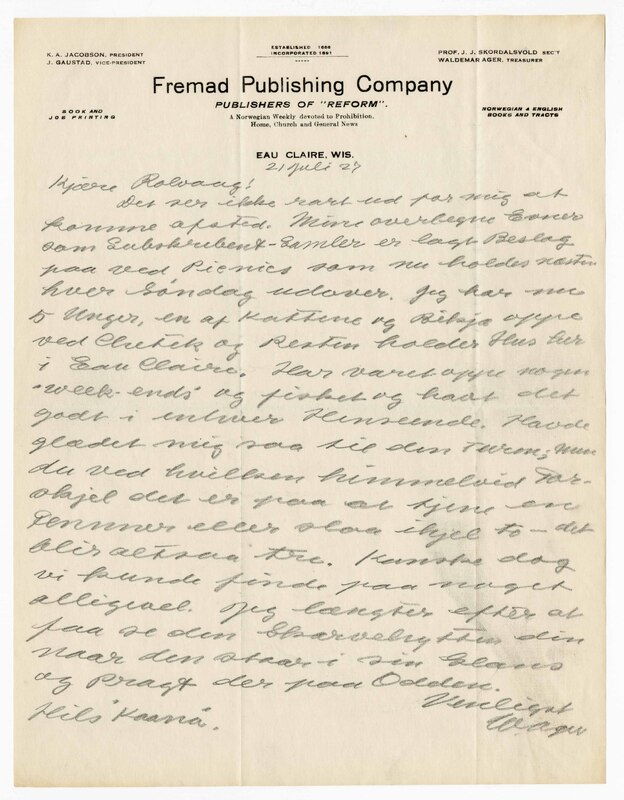 K. A. JACOBSON, PRESIDENT
J. GAUSTAD, VICE-PRESIDENT
ESTABLISHED 1886
INCORPORATED 1891
PROF. J. J. SKORDALSVOLD SEC'T
WALDEMAR AGER, TREASURER
Fremad Publishing Company
PUBLISHERS OF "REFORM".
BOOK AND
JOB PRINTING
A Norwegian Weekly devoted to Prohibition,
Home, Church and General News
NORWEGIAN & ENGLISH
BOOKS AND TRACTS
EAU CLAIRE, WIS.
21 Juli 27
Kjære Rolvaag!
Det ser ikke rart ud for mig at
komme afsted. Mine overbegne Evner
som Subskribent-Samler er lagt Beslag
paa ved Picnics som nu holdes næsten
hver Søndag udover. Jeg har nu
5 Unger, en af Kattene og Bikja oppe
ved Chetek og Resten holder Hus her
i Eau Claire. Har været oppe nogen
"week-ends" og fisket og havt det
godt i enhver Henseende. Havde
glædet mig saa til den Turen; men
du ved hvilken himmelvid For-
skjel det er paa at tjene en
Penner eller slaa ihjel to – det
blir altsaa tre. Kanske dog
vi kunde finde paa noget
alligevel. Jeg længter efter at
faa se den Skarvehytten din
naar den staar i sin Glans
og Pragt der paa Odden.
Venligst
W. Ager
Hils